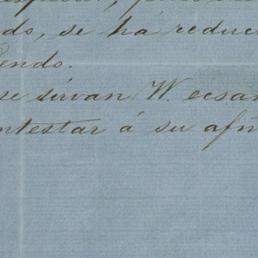 do, se há reduc
endo.
se sirvan W. ecsam
ntestar á su afm